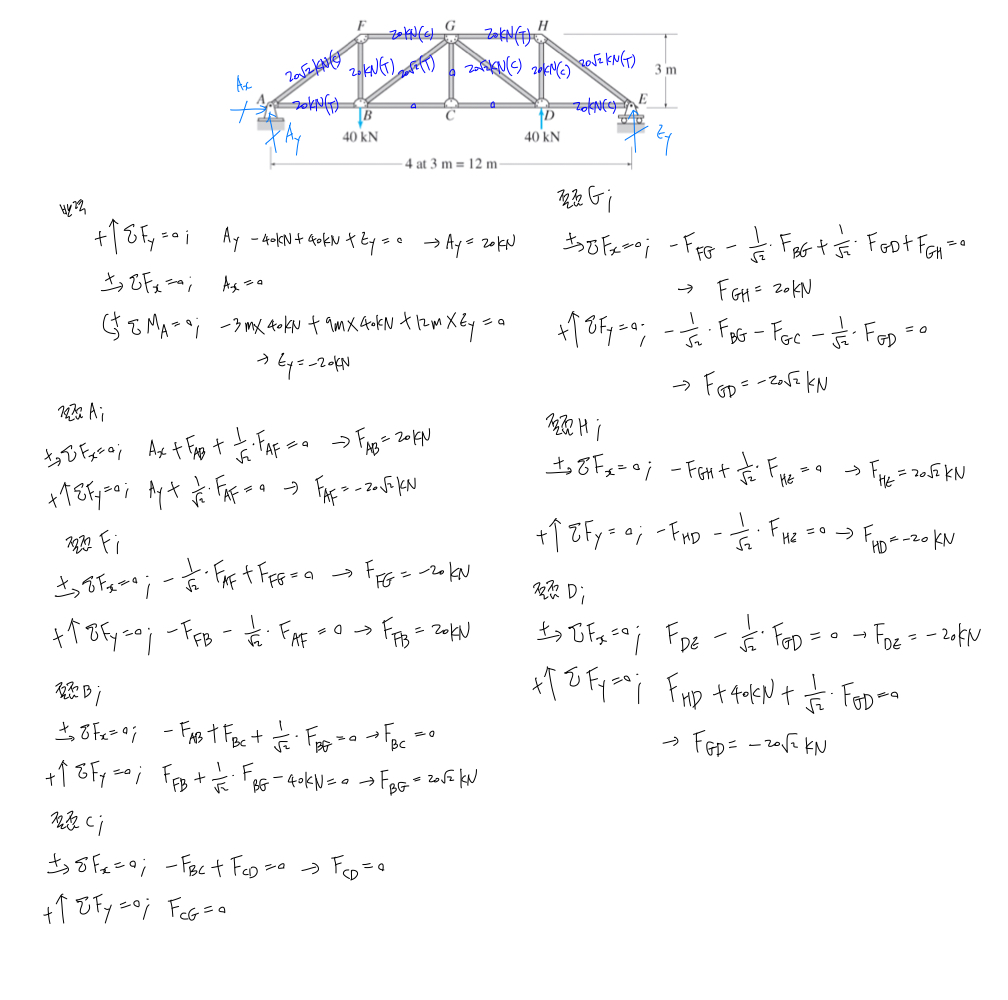 F G H
20kN(C) 20kN(T)
20√2kN(C) 20kN(T) 20√2(T) 0 20√2kN(C) 20kN(C) 20√2kN(T)
3 m
Ax
A 20kN(T) B 0 C 0 D 20kN(C) E
Ay 40 kN 40 kN Ey
4 at 3 m = 12 m
반력
+↑ΣFy=0; Ay -40kN+40kN+Ey=0 →Ay=20kN
+→ΣFx=0; Ax=0
(+ΣMA=0; -3m×40kN+9m×40kN+12m×Ey=0
→ Ey=-20kN
절점 A;
+→ΣFx=0; Ax+FAB+1/√2·FAF=0 →FAB=20kN
+↑ΣFy=0; Ay+1/√2·FAF=0 → FAF=-20√2kN
절점 F;
+→ΣFx=0; -1/√2·FAF+FFG=0 → FFG=-20kN
+↑ΣFy=0; -FFB-1/√2·FAF=0 → FFB=20kN
절점 B;
+→ΣFx=0; -FAB+FBC+1/√2·FBG=0 →FBC=0
+↑ΣFy=0; FFB+1/√2·FBG-40kN=0 →FBG=20√2kN
절점 C;
+→ΣFx=0; -FBC+FCD=0 → FCD=0
+↑ΣFy=0; FCG=0
절점 G;
+→ΣFx=0; -FFG-1/√2·FBG+1/√2·FGD+FGH=0
→ FGH=20kN
+↑ΣFy=0; -1/√2·FBG-FGC-1/√2·FGD=0
→ FGD=-20√2kN
절점 H;
+→ΣFx=0; -FGH+1/√2·FHE=0 →FHE=20√2kN
+↑ΣFy=0; -FHD-1/√2·FHE=0 →FHD=-20kN
절점 D;
+→ΣFx=0; FDE-1/√2·FGD=0 →FDE=-20kN
+↑ΣFy=0; FHD+40kN+1/√2·FGD=0
→ FGD=-20√2kN